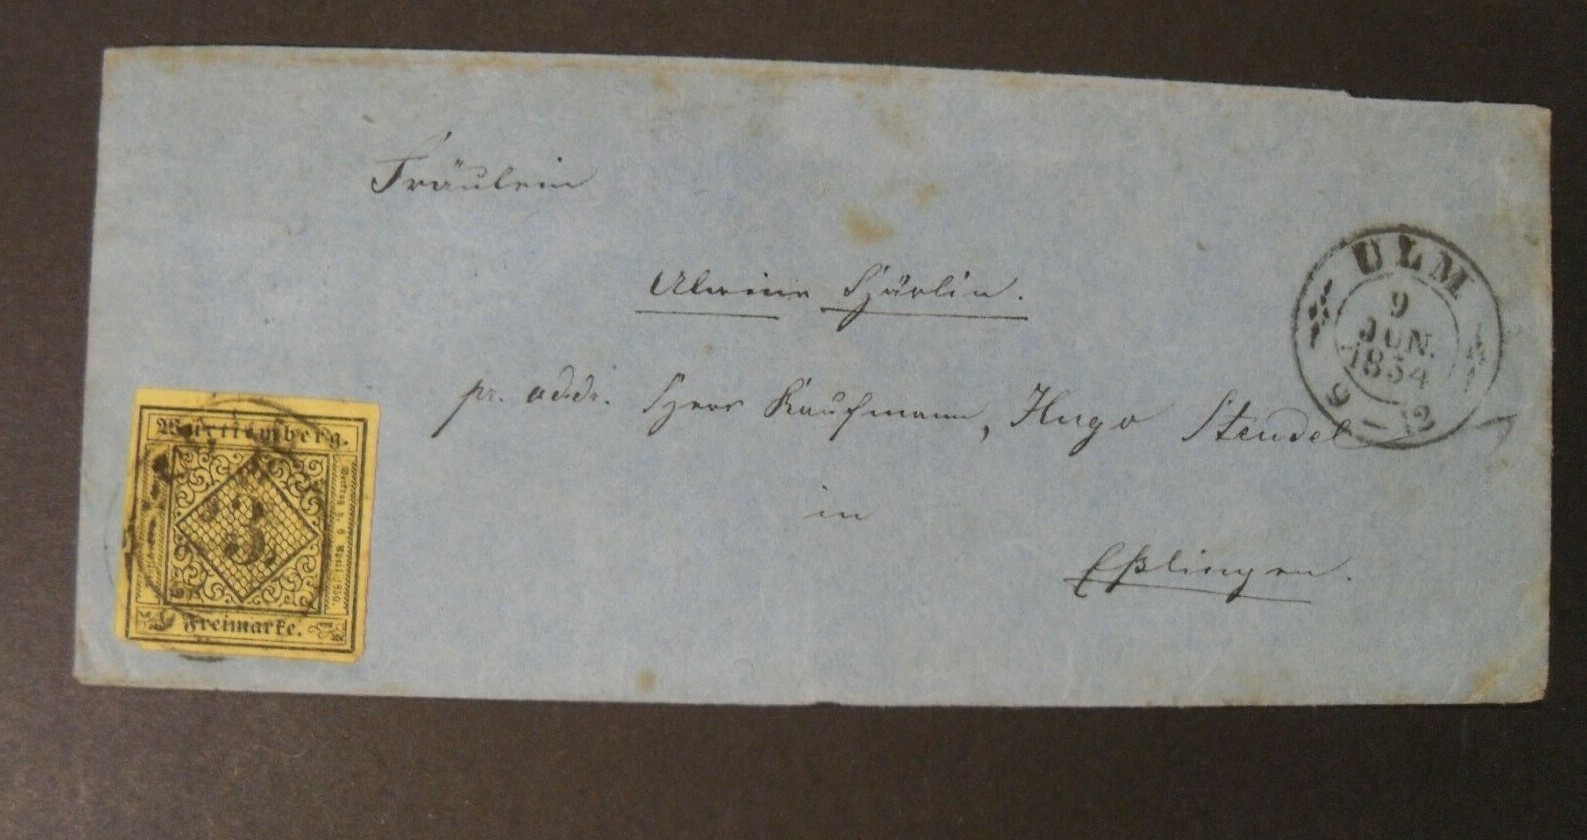 Fräulein
Alwine Härlin.
pr. addr. Herr Kaufmann, Hugo Steudel
in
Eßlingen.
ULM
9
JUN.
1854
9 – 12
Württemberg.
3.
Freimarke.